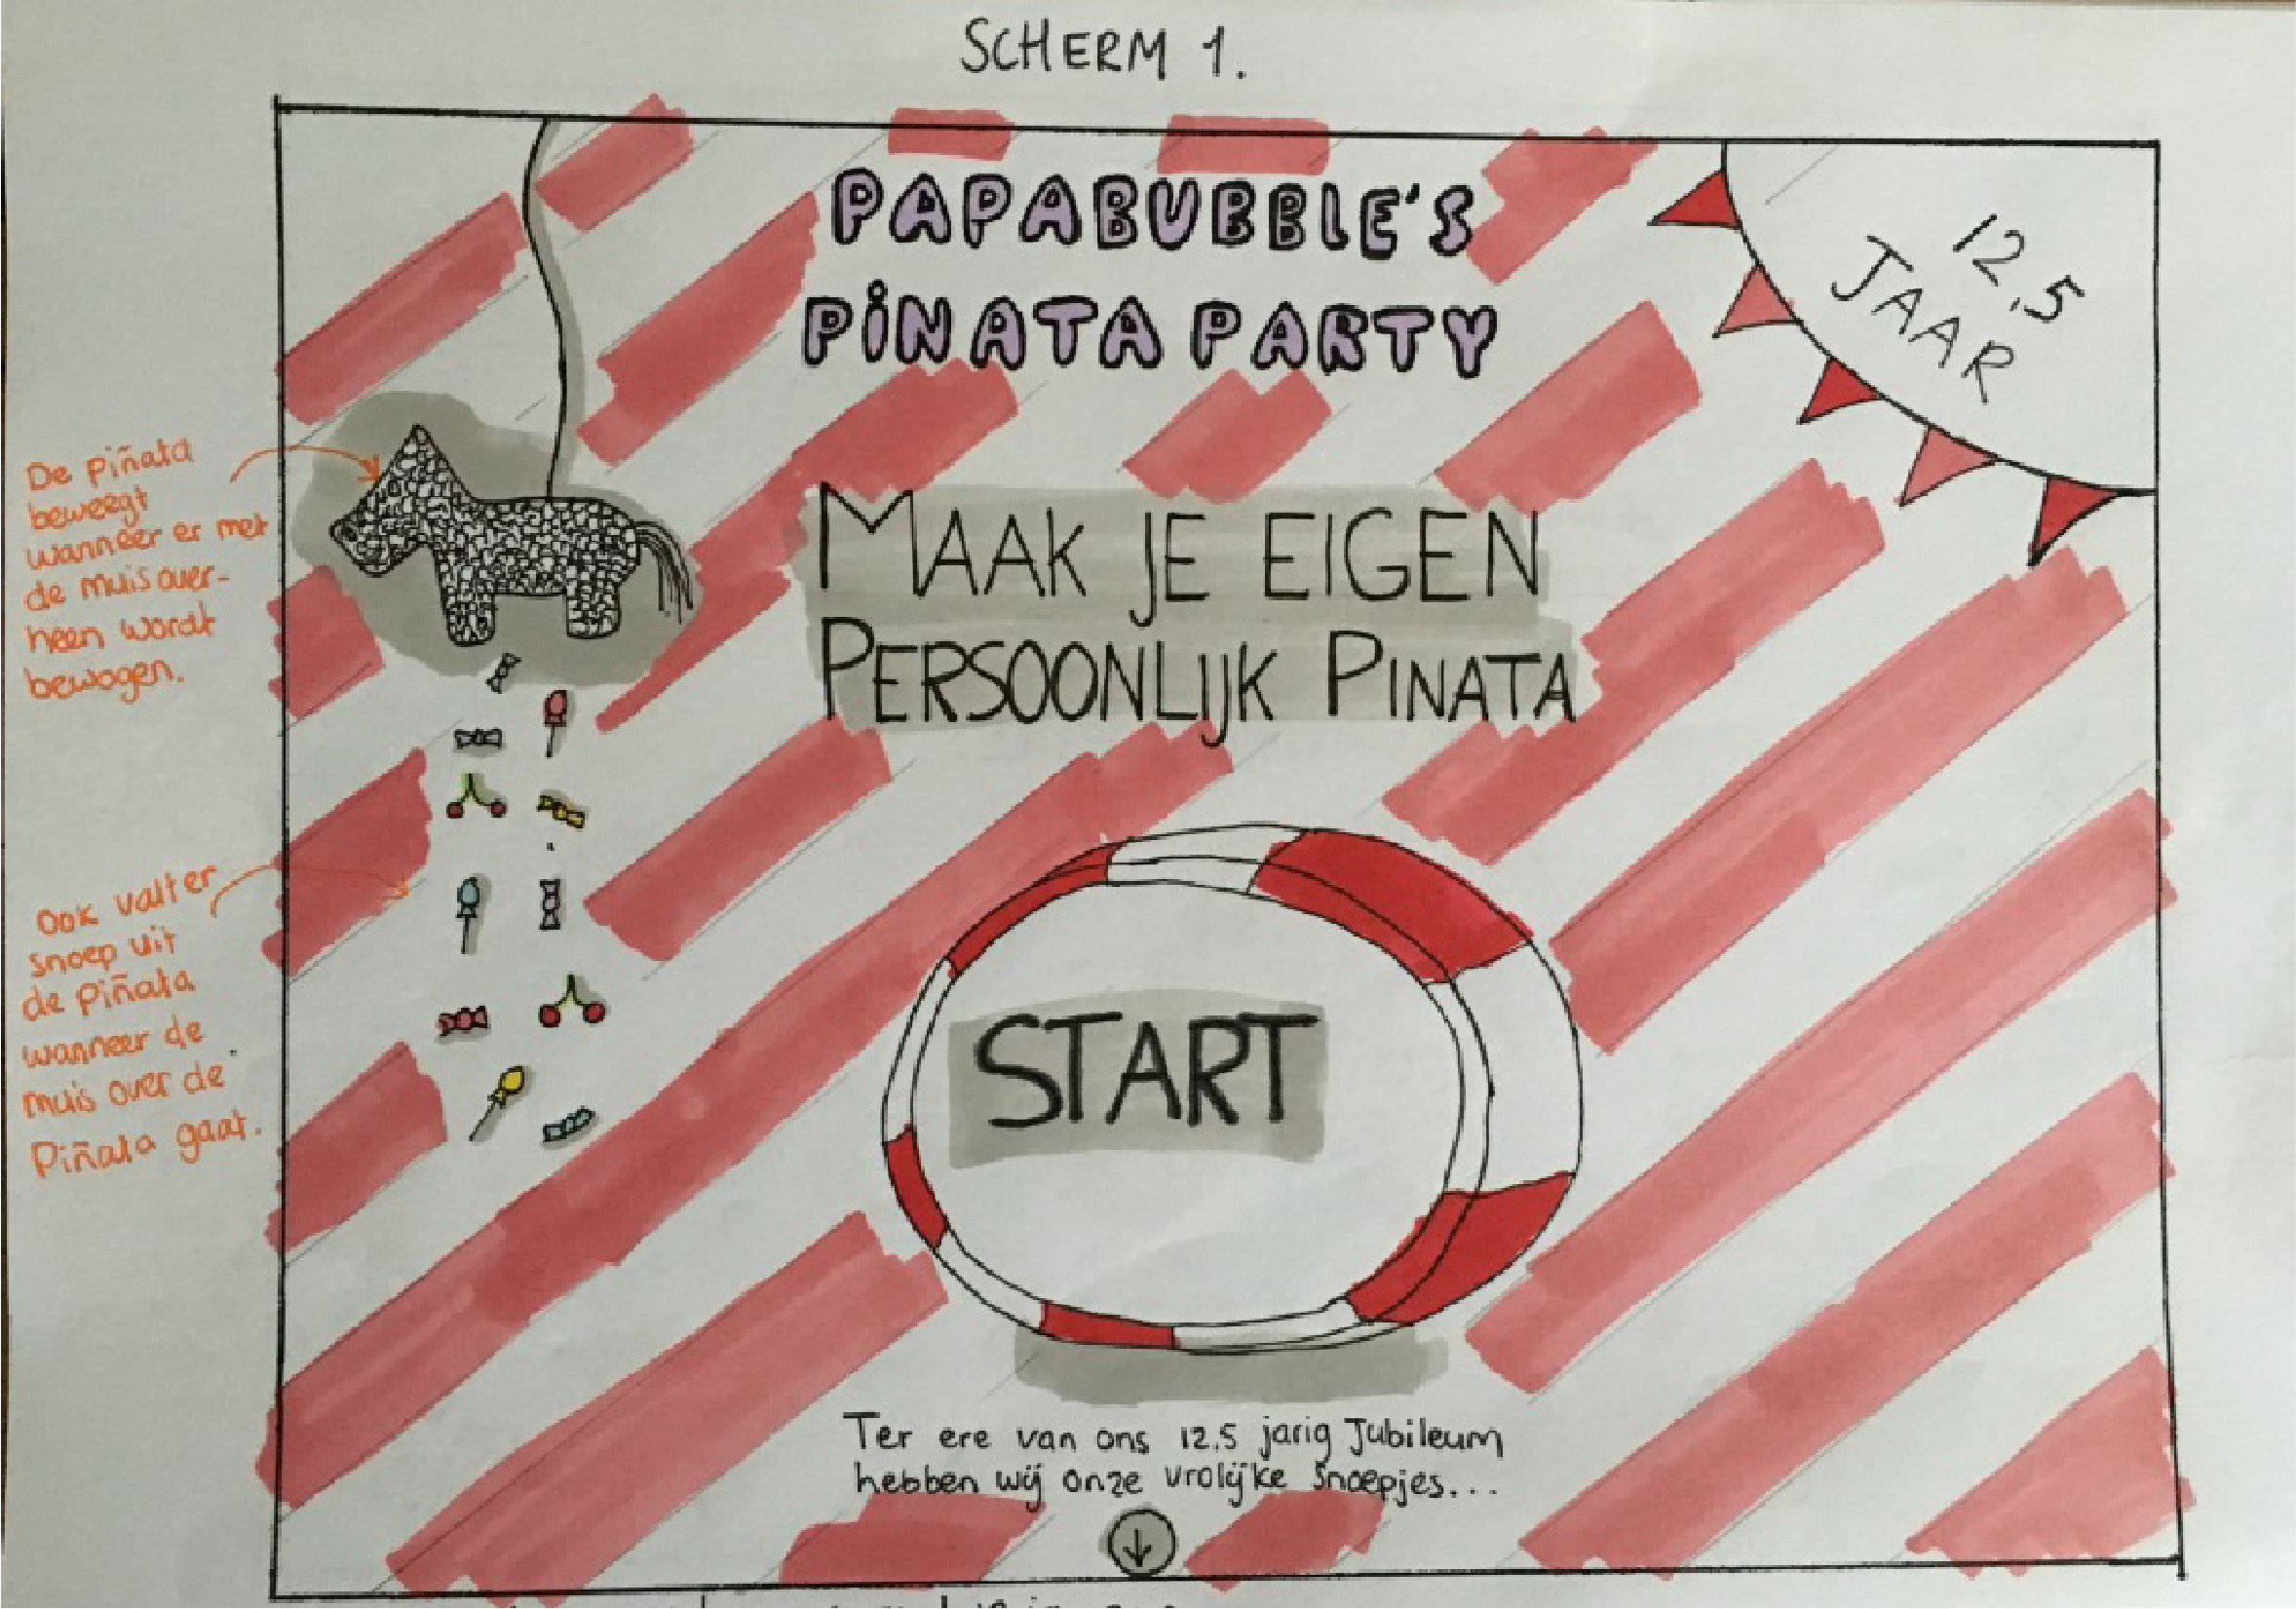 SCHERM 1.
PAPABUBBLE'S
PiNATA PARTY
12,5
JAAR
De piñata
beweegt
wanneer er met
de muis over-
heen wordt
bewogen.
MAAK JE EIGEN
PERSOONLIJK PINATA
Ook valt er
snoep uit
de piñata
wanneer de
muis over de
Piñata gaat.
START
Ter ere van ons 12.5 jarig Jubileum
hebben wij onze vrolijke snoepjes...